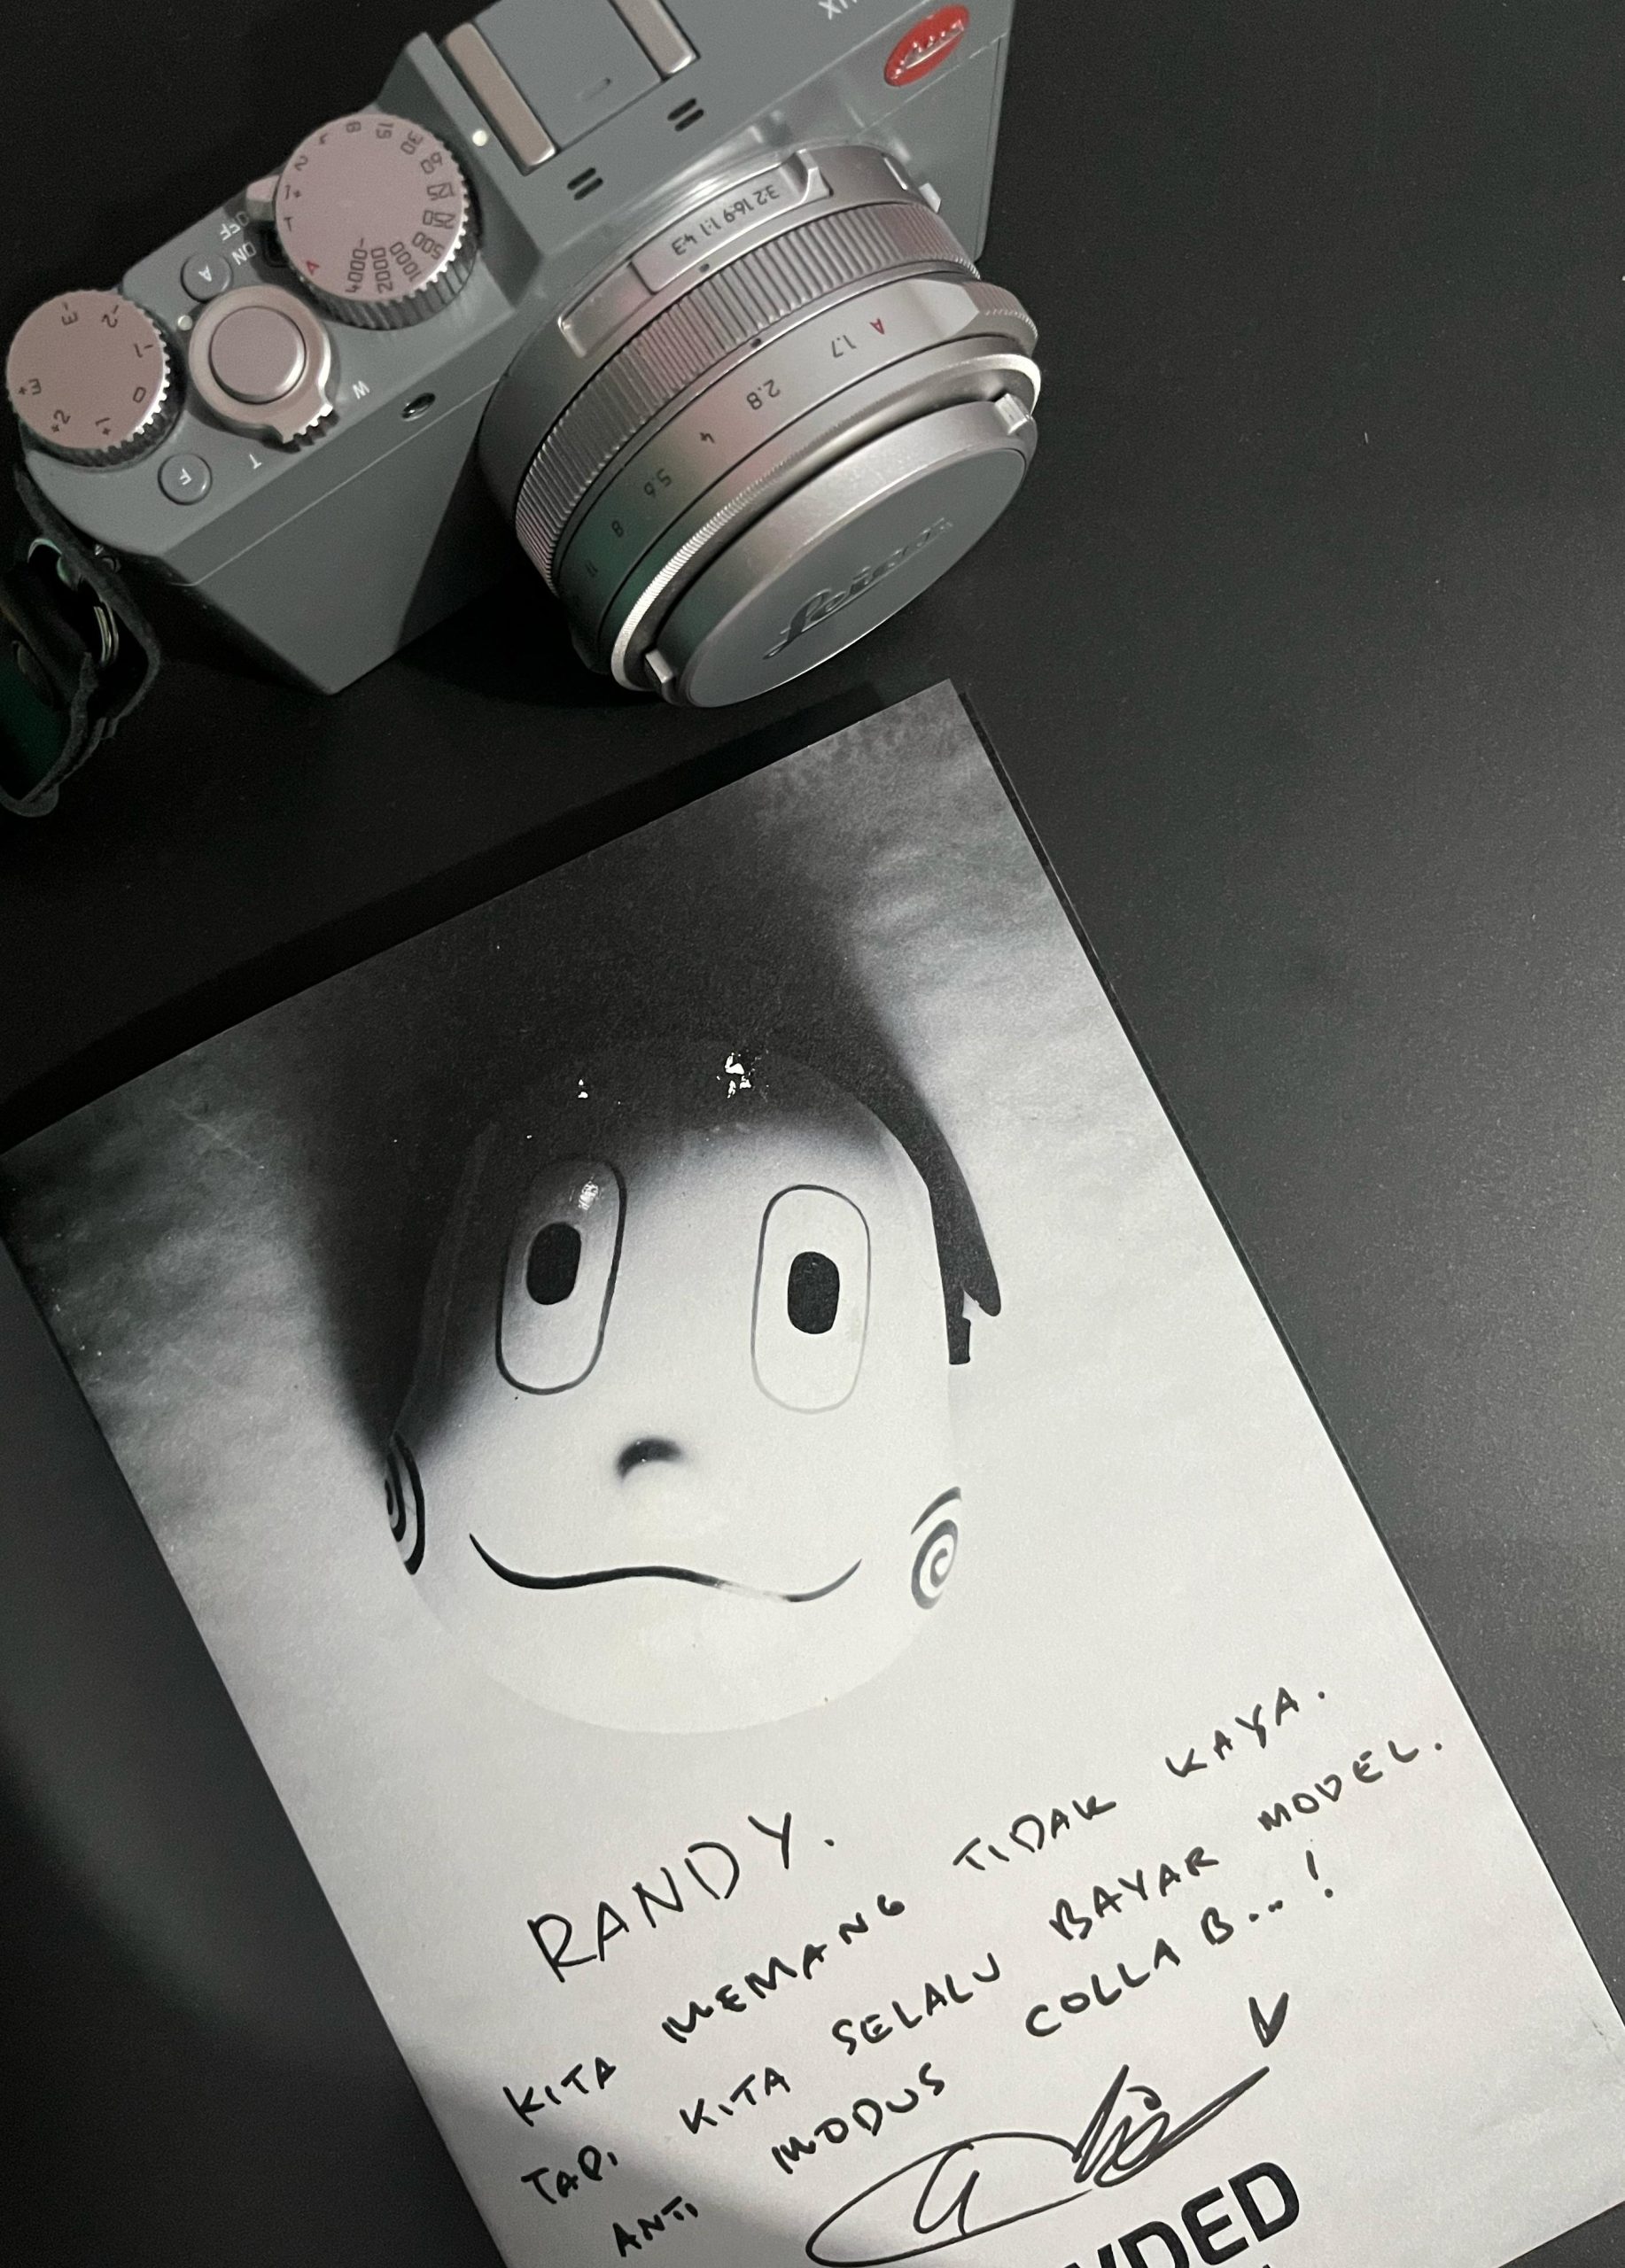 Leica
3:2 16:9 1:1 4:3
A 1.7 2.8 4 5.6 8 11
Leica
1+ 2 4 8 15 30 60 125 250 500 1000 2000 4000- A T
OFF ON
A
W T
F
-3 -2 -1 0 +1 +2 +3
RANDY.
KITA MEMANG TIDAK KAYA.
TAPI KITA SELALU BAYAR MODEL.
ANTI MODUS COLLAB...!